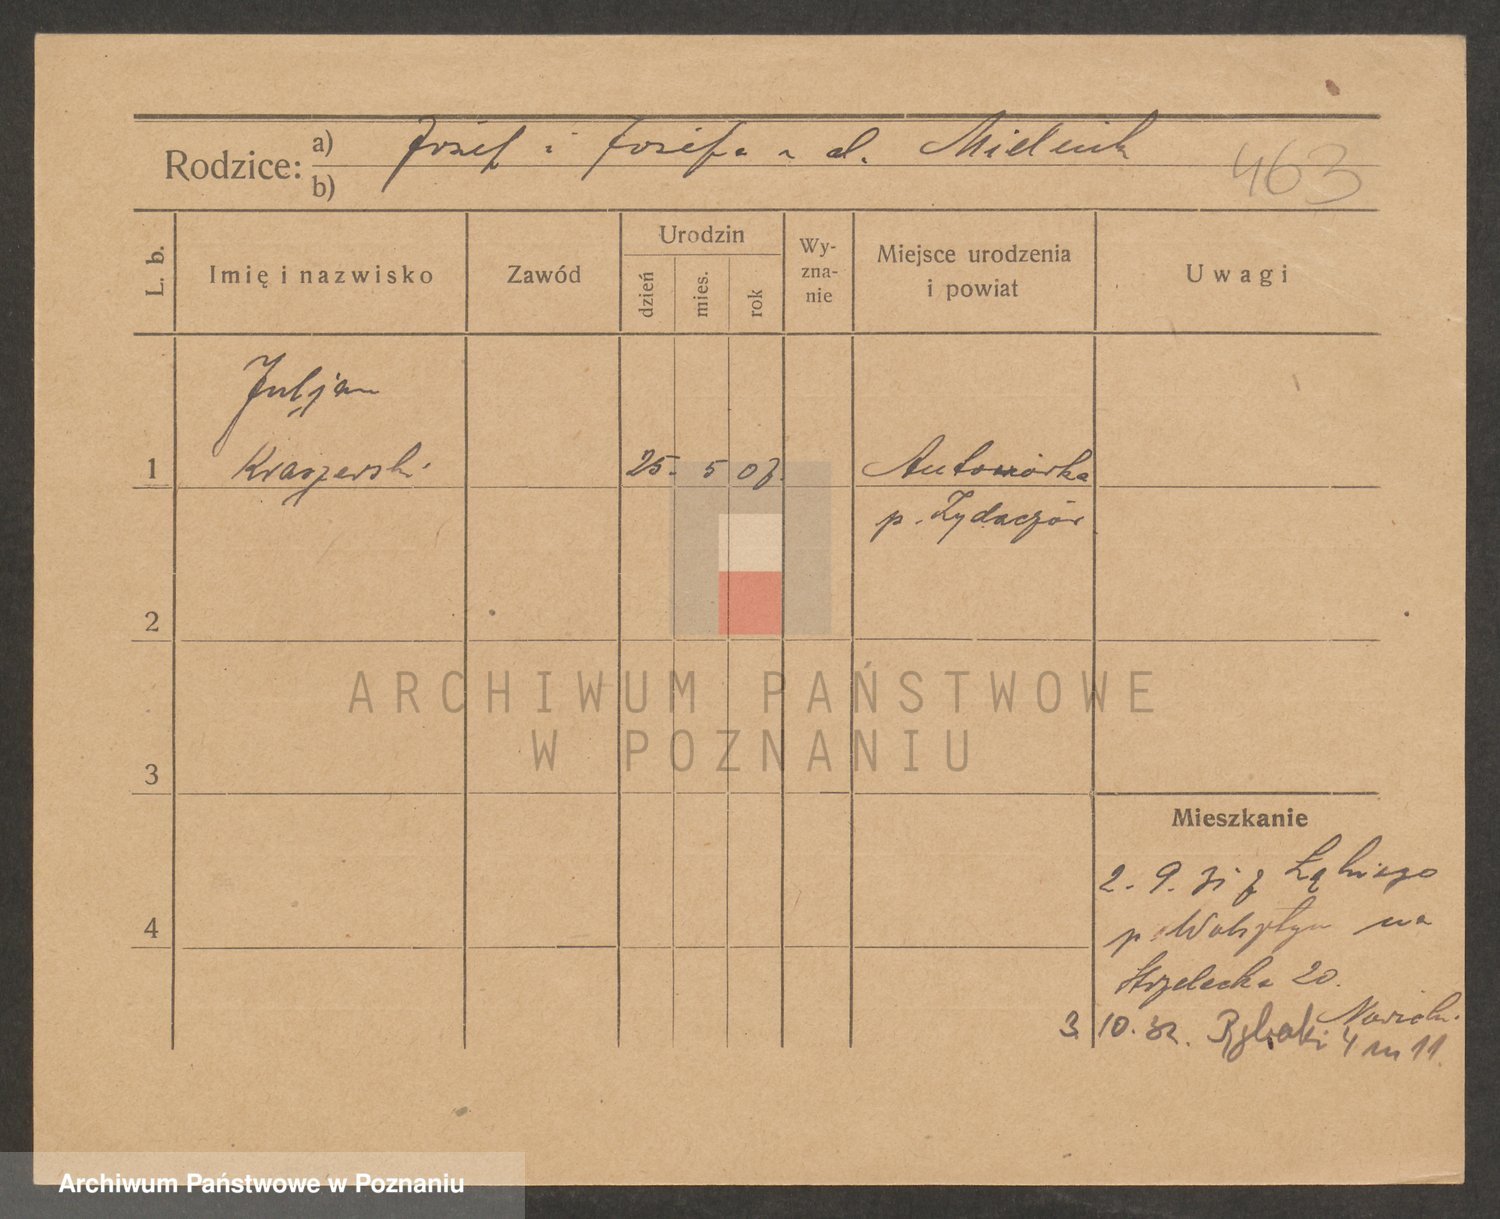 Rodzice: a) Józef i Józefa z d. Mielnik
b)
463
L. b.
Imię i nazwisko
Zawód
Urodzin
dzień
mies.
rok
Wy-
zna-
nie
Miejsce urodzenia
i powiat
Uwagi
Juljan
1 Kraszewski 25. 5 07. Antonówka
p. Żydaczów
2
3
4
ARCHIWUM PAŃSTWOWE
W POZNANIU
Mieszkanie
2. 9. 31 z
p. Wolsztyn na
Strzelecka 20.
3. 10. 32. Rybaki 4 m 11
Archiwum Państwowe w Poznaniu